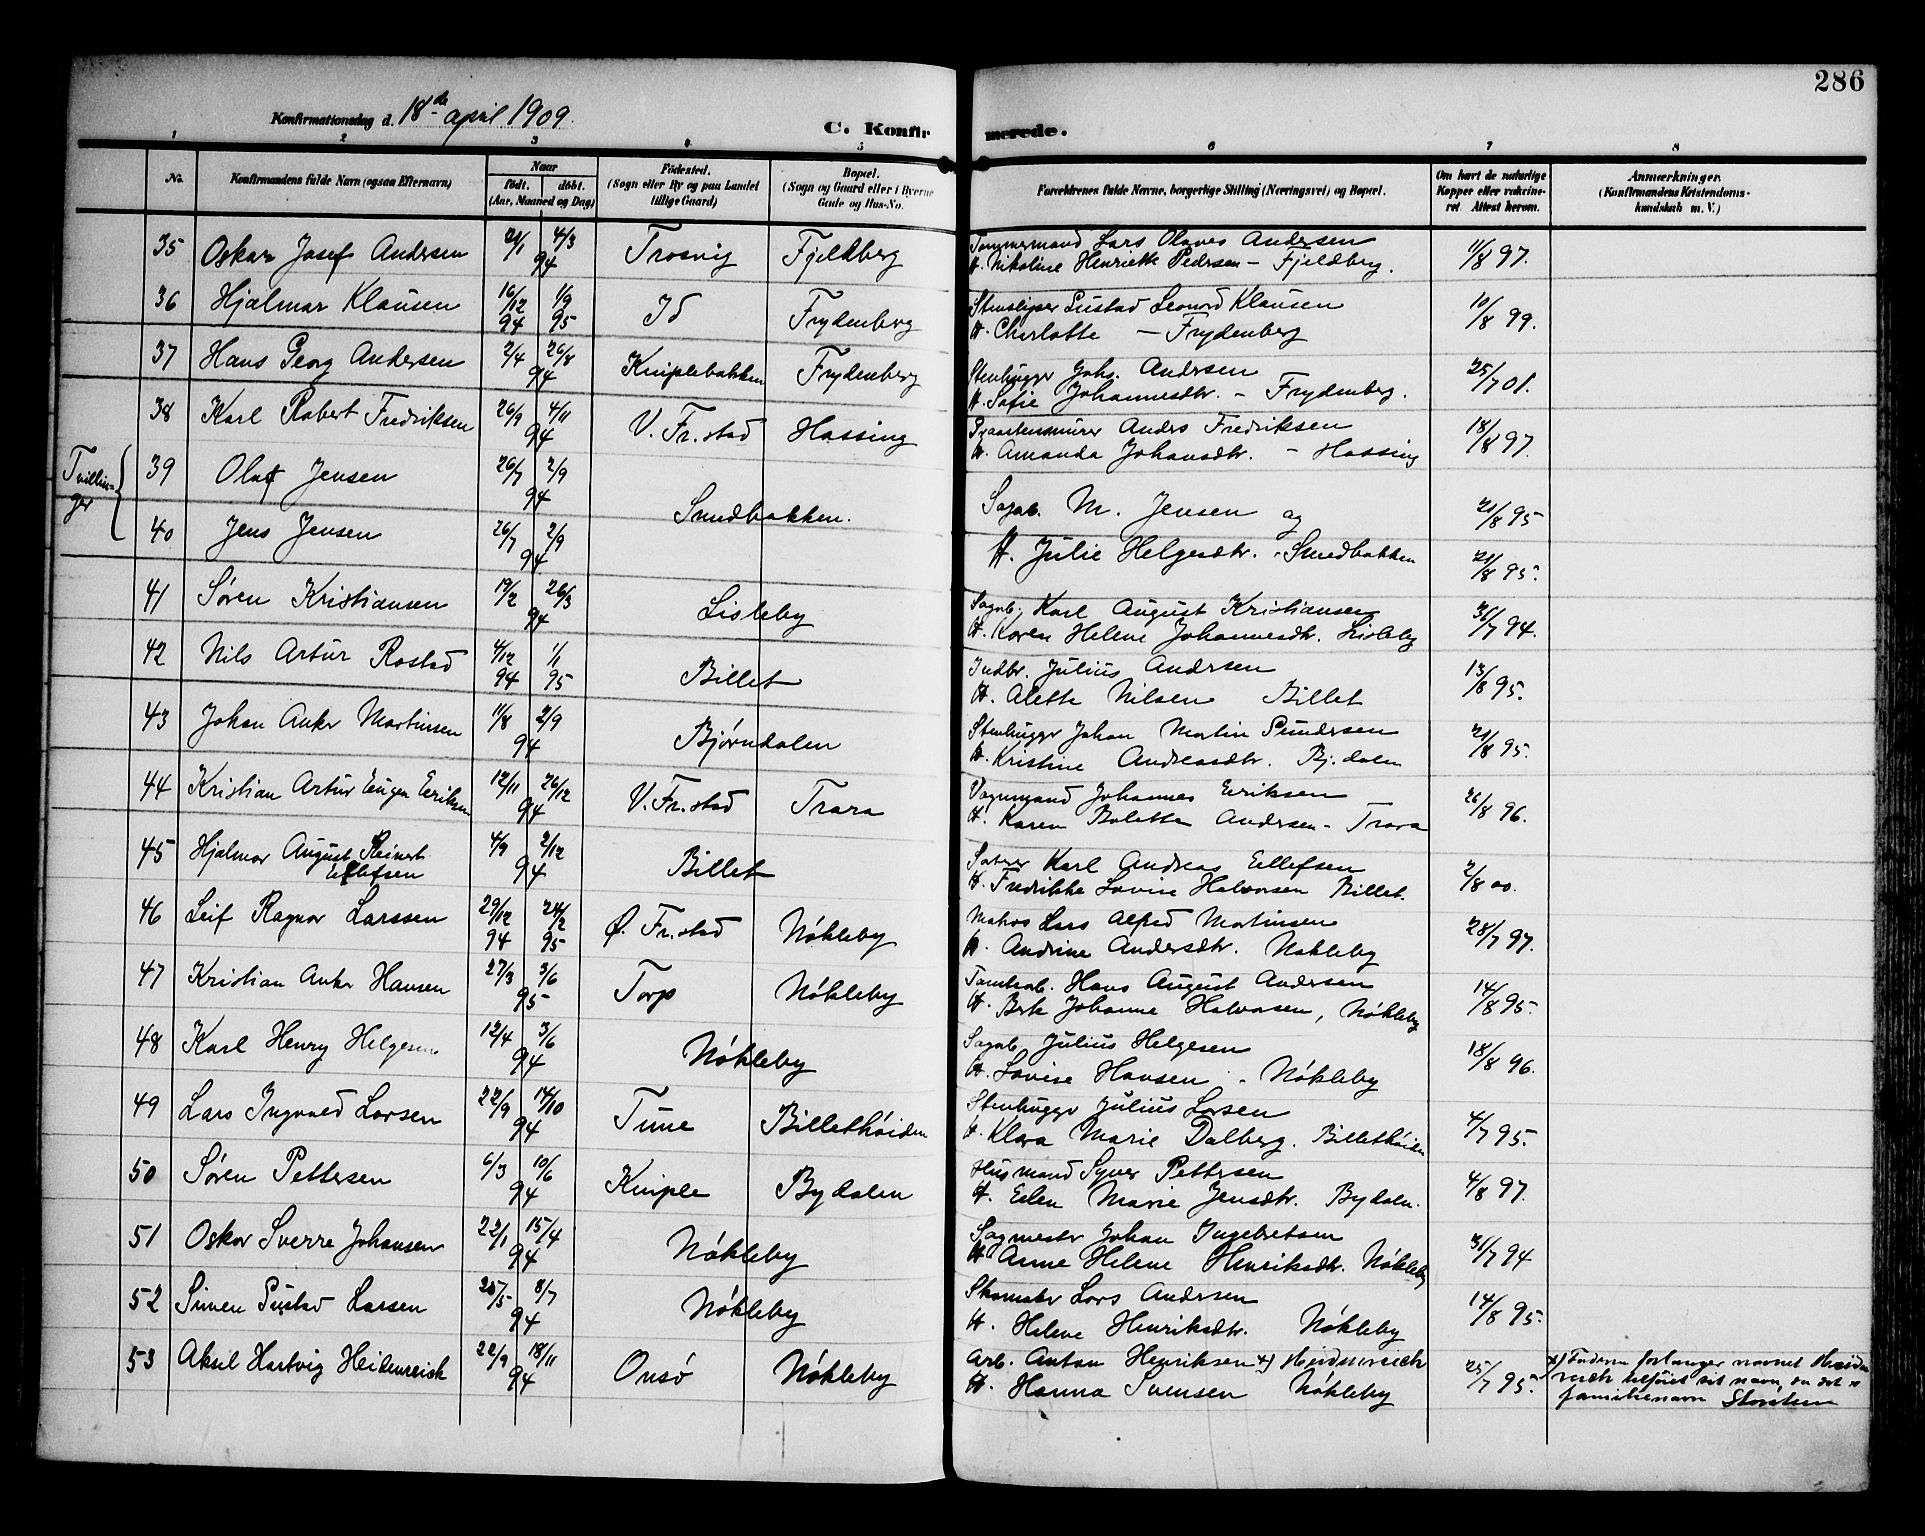 286
Konfirmationsdag d. 18de april 1909.
C. Konfirmerede.
1 2 3 4 5 6 7 8
No.
Konfirmandens fulde Navn (ogsaa Efternavn)
Naar
født. døbt.
(Aar, Maaned og Dag)
Fødested.
(Sogn eller By og paa Landet
tillige Gaard)
Bopæl.
(Sogn og Gaard eller i Byerne
Gade og Hus-No.
Forældrenes fulde Navne, borgerlige Stilling (Næringsvei) og Bopæl.
Om havt de naturlige
Kopper eller vakcine-
ret Attest herom.
Anmærkninger.
(Konfirmandens Kristendoms-
kundskab m. V.)
35 Oskar Josef Andersen 21/1 4/3 94 Trosvig Fjeldberg Tømmermand Lars Olaves Andersen 11/8 97.
H. Nikoline Henriette Pedersen – Fjeldberg.
36 Hjalmar Klausen 16/12 94 1/9 95 Id Frydenberg Stensliper Gustad Leonard Klausen 10/8 99.
H. Charlotte – Frydenberg
37 Hans Georg Andersen 2/4 26/8 94 Kniplebakken Frydenberg Stenhugger Johs. Andersen 25/7 01.
H. Sofie Johannesdtr. – Frydenberg.
38 Karl Robert Fredriksen 26/9 4/11 94 V. Fr.stad Hassing Anders Fredriksen 18/8 97.
H. Amanda Johansdtr. – Hassing
Tvillin-
ger
39 Olaf Jensen 26/7 2/9 94 Smedbakken. Sagab. M. Jensen og 21/8 95
40 Jens Jensen 26/7 2/9 94 H. Julie Helgesdtr. - Smedbakken 21/8 95.
41 Søren Kristiansen 19/2 26/3 94 Lisleby Sagab. Karl August Kristiansen 31/7 94.
H. Karen Helene Johannesdtr. Lisleby
42 Nils Artur Rostad 4/12 94 1/1 95 Billet Indbr. Julius Andersen 13/8 95.
H. Alette Nilsen Billet
43 Johan Anker Martinsen 11/8 2/9 94 Bjørndalen Stenhugger Johan Martin Gundersen 21/8 95.
H. Kristine Andreasdtr. Bj.dalen
44 Kristian Artur Eugen Eriksen 12/11 26/12 94 V. Fr.stad Trara Vognmand Johannes Eriksen 26/8 96.
H. Karen Bolette Andersen – Trara
45 Hjalmar August Reinert 4/9 2/12 94 Billet Karl Andreas Ellefsen 2/8 00.
Ellefsen H. Fredrikke Lovise Halvorsen Billet.
46 Leif Ragnar Larssen 29/12 94 24/2 95 Ø. Fr.stad Nøkleby Matros Lars Alfred Martinsen 28/7 97.
H. Andrine Andersdtr. Nøkleby
47 Kristian Anker Hansen 27/3 3/6 95 Torp Nøkleby Tomtearb. Hans August Andersen 14/8 95.
H. Berte Johanne Halvorsen, Nøkleby
48 Karl Henry Helgesen 12/4 3/6 94 Nøkleby Sagab. Julius Helgesen 18/8 96.
H. Lovise Hansen - Nøkleby
49 Lars Ingvald Larsen 22/9 14/10 94 Tune Billethøiden Stenhugger Julius Larsen 4/7 95.
H. Klara Marie Dalberg. Billethøiden
50 Søren Pettersen 6/3 10/6 94 Kniple Bydalen Husmand Syver Pettersen 4/8 97.
H. Elen Marie Jensdtr. Bydalen.
51 Oskar Sverre Johansen 22/1 15/4 94 Nøkleby Sagmester Johan Ingebretsen 31/7 94
H. Anne Helene Henriksdtr. Nøkleby
52 Simen Gustad Larsen 20/5 8/7 94 Nøkleby Skomaker Lars Andersen 14/8 95.
H. Helene Henriksdtr. Nøkleby
53 Aksel Hartvig Heidenreich 22/9 18/11 94 Onsø Nøkleby Arb. Anton Henriksen x) Heidenreich 25/7 95.
H. Hanna Svensen Nøkleby
x) Faderen forlanger navnet Heiden
reich tilføiet sit navn, da det er
familienavn